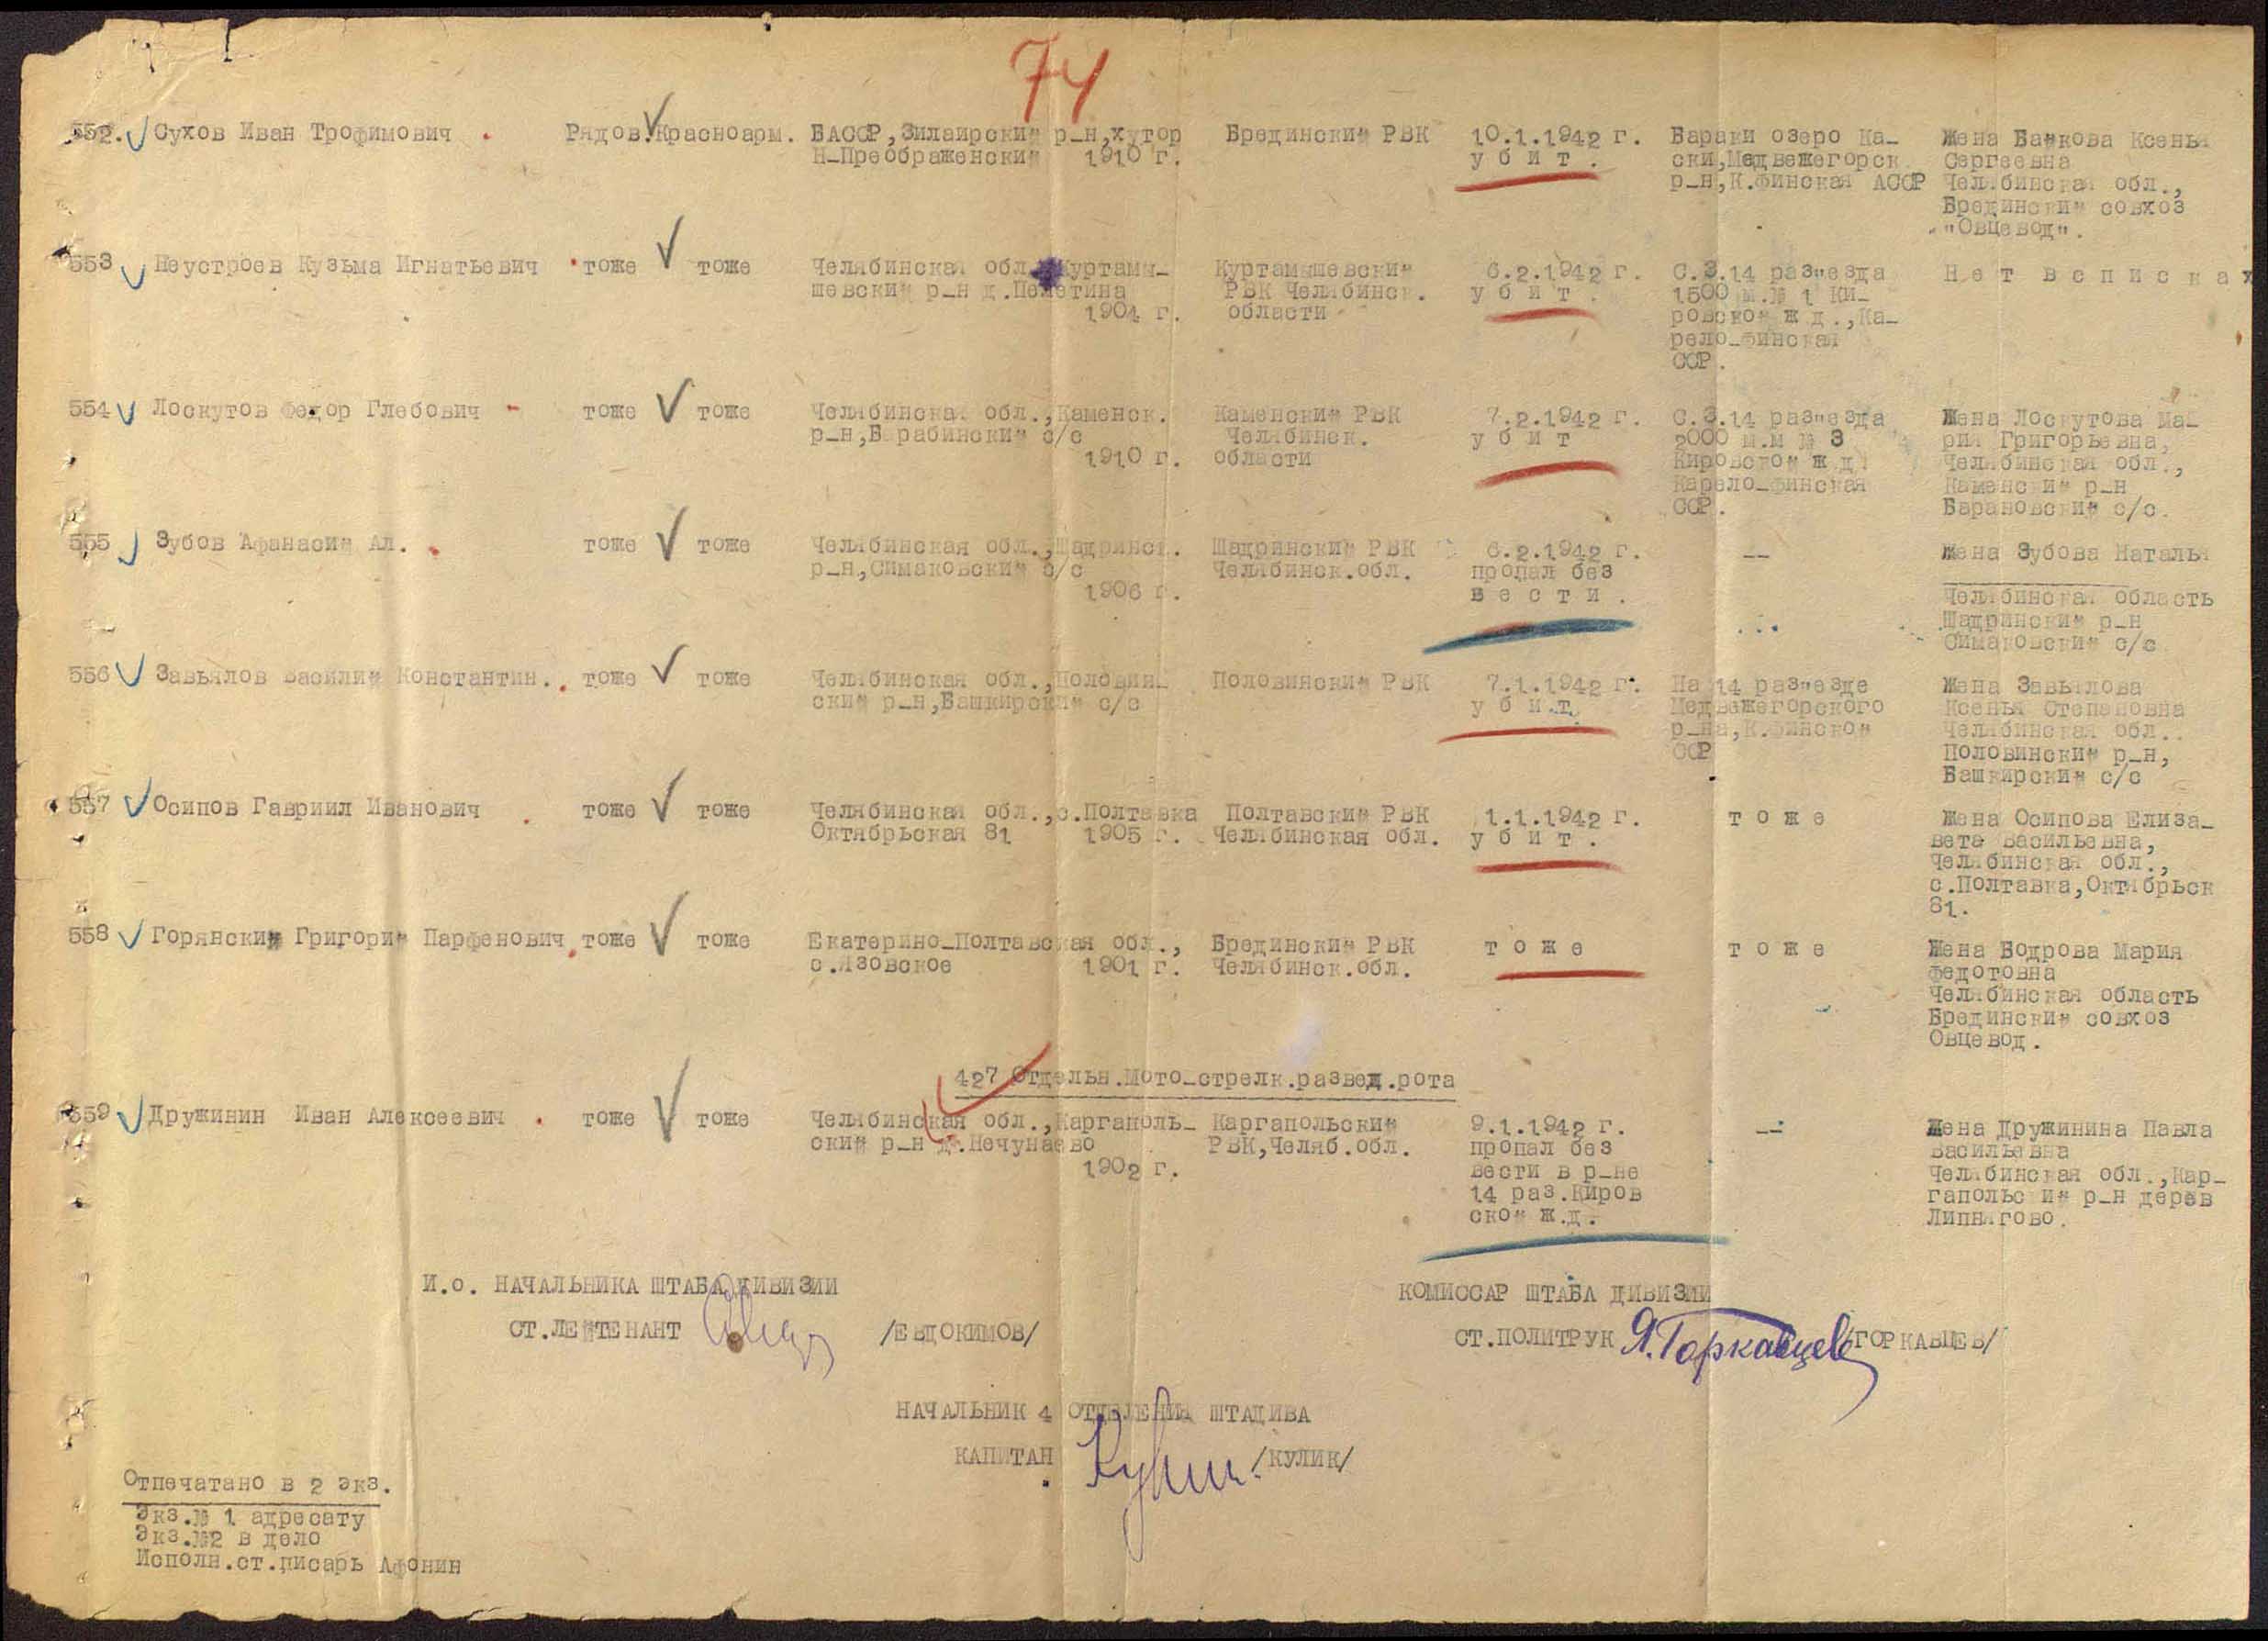 74
552. Сухов Иван Трофимович Рядов. Красноарм. БАССР,Зилаирский р-н,хутор Брединский РВК 10.1.1942 г. Бараки озеро Ка- Жена Байкова Ксенья
Н-Преображенский 1910 г. у б и т . ски,Медвежегорск Сергеевна
р-н,К.Финская АССР Челябинская обл.,
Брединский совхоз
"Овцевод".
553 Неустроев Кузьма Игнатьевич тоже тоже Челябинская обл. Куртамы- Куртамышевский 6.2.1942 г. С.З.14 раз"езда Н е т в с п и с к а х
шевский р-н д. РВК Челябинск. у б и т . 1500 м.№ 1 Ки-
1904 г. области ровской ж д.,Ка-
рело-Финская
ССР.
554 Лоскутов Федор Глебович тоже тоже Челябинская обл.,Каменск. Каменский РВК 7.2.1942 г. С.З.14 раз"езда Жена Лоскутова Ма-
р-н,Барабинский с/с Челябинск. у б и т 2000 м.м № 3 рия Григорьевна,
1910 г. области Кировской ж.д. Челябинская обл.,
Карело-Финская Каменский р-н
ССР. Барановский с/с.
555 Зубов Афанасий Ал. тоже тоже Челябинская обл.,Шадринск. Шадринский РВК 6.2.1942 г. -- Жена Зубова Наталья
р-н,Симаковский с/с Челябинск.обл. пропал без
1906 г. в е с т и . Челябинская область
Шадринский р-н
Симаковский с/с
556 Завьялов Василий Константин. тоже тоже Челябинская обл.,Половин- Половинский РВК 7.1.1942 г. На 14 раз"езде Жена Завьялова
ский р-н,Башкирский с/с у б и т. Медвежегорского Ксенья Степановна
р-на,К.Финской Челябинская обл..
ССР Половинский р-н,
Башкирский с/с
557 Осипов Гавриил Иванович тоже тоже Челябинская обл.,с.Полтавка Полтавский РВК 1.1.1942 г. т о ж е Жена Осипова Елиза-
Октябрьская 81 1905 г. Челябинская обл. у б и т . вета Васильевна,
Челябинская обл.,
с.Полтавка,Октябрьск
81.
558 Горянский Григорий Парфенович тоже тоже Екатерино-Полтавская обл., Брединский РВК т о ж е т о ж е Жена Бодрова Мария
с.Язовское 1901 г. Челябинск.обл. Федотовна
Челябинская область
Брединский совхоз
Овцевод.
427 Отдельн.Мото-стрелк.развед.рота
559 Дружинин Иван Алексеевич тоже тоже Челябинская обл.,Каргаполь- Каргапольский 9.1.1942 г. -- Жена Дружинина Павла
ский р-н д.Нечунаево РВК,Челяб.обл. пропал без Васильевна
1902 г. вести в р-не Челябинская обл.,Кар-
14 раз.Киров гапольский р-н дерев
ской ж.д. Липнягово.
И.о. НАЧАЛЬНИКА ШТАБА ДИВИЗИИ КОМИССАР ШТАБА ДИВИЗИИ
СТ.ЛЕЙТЕНАНТ /ЕВДОКИМОВ/ СТ.ПОЛИТРУК Я.Горкавцев /ГОРКАВЦЕВ/
НАЧАЛЬНИК 4 ОТДЕЛЕНИЯ ШТАДИВА
КАПИТАН Кулик /КУЛИК/
Отпечатано в 2 экз.
Экз.№ 1 адресату
Экз.№2 в дело
Исполн.ст.писарь Афонин